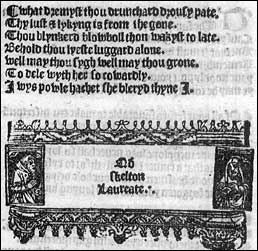 ¶ What dremyst thou drunchard drousy pate.
Thy lust & lykyng is from the gone.
Thou blynkerd blowboll thou wakyst to late.
Behold thou lyeste luggard alone.
well may thou sygh well may thou grone.
To dele wyth her so cowardly.
I wys powle hachet she bleryd thyne I.
Qd
skelton
Laureate.